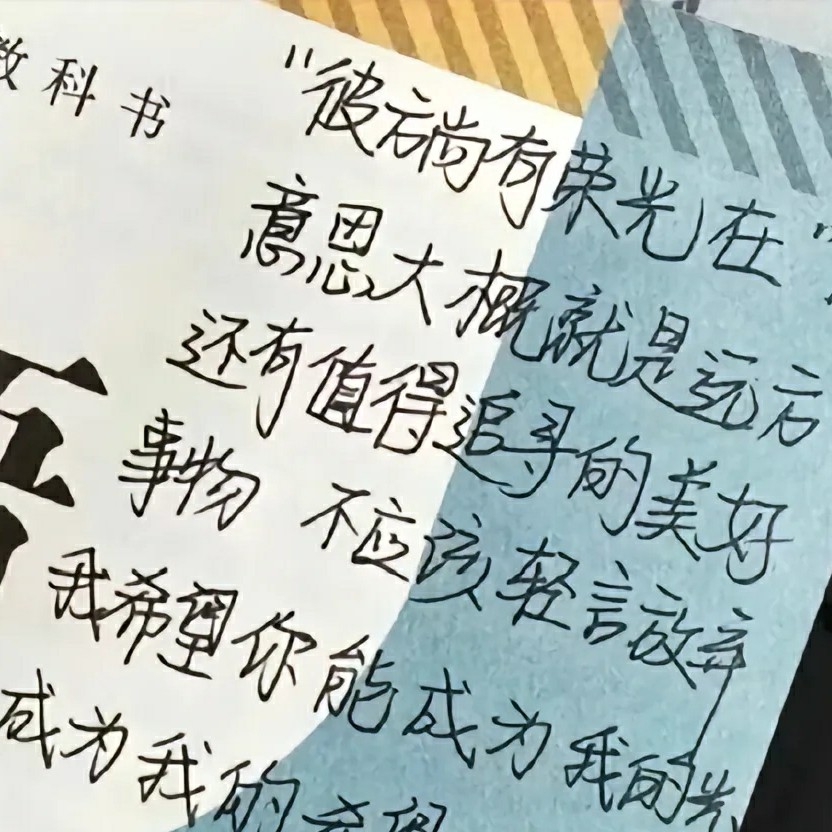 教科书
"彼方尚有荣光在"
意思大概就是远方
还有值得追寻的美好
事物 不应该轻言放弃
我希望你能成为我的光
成为我的希望